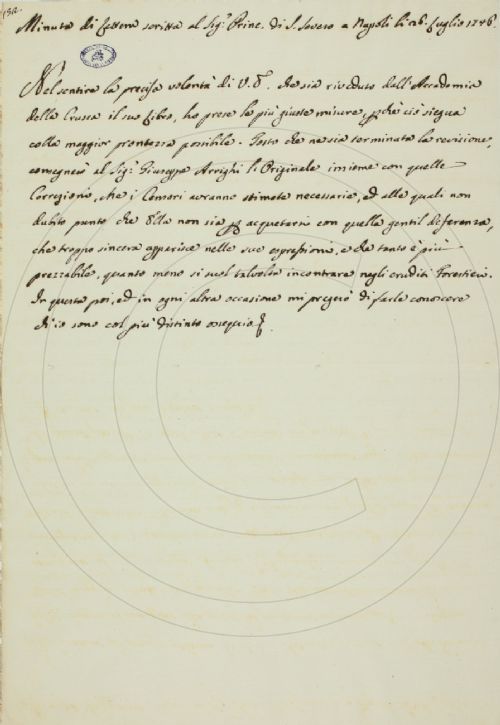 152.
Minuta di Lettera scritta al Sig.r Princ. di S. Severo a Napoli li 26. Luglio 1746.
Nel sentire la precisa volontà di V. E. che sia riveduto dall'Accademia
della Crusca il suo Libro, ho prese le più giuste misure, perchè ciò siegua
colla maggior prontezza possibile. Tosto che ne sia terminata la revisione,
consegnerò al Sig.r Giuseppe Arrighi l'Originale insieme con quelle
Correzioni, che i Censori avranno stimate necessarie, ed alle quali non
dubito punto che Ella non sia per acquetarsi con quella gentil deferenza,
che troppo sincera apparisce nelle sue espressioni, e che tanto è più
prezzabile, quanto meno si suol talvolta incontrare negli eruditi Forestieri.
In questa poi, ed in ogni altra occasione mi pregerò di farle conoscere
ch'io sono col più distinto ossequio